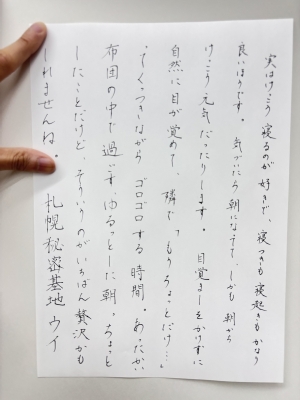 実はけっこう寝るのが好きで、寝つきも寝起きもかなり
良いほうです。気づいたら朝になってて、しかも朝から
けっこう元気だったりします。目覚ましをかけずに
自然に目が覚めて、隣で「もうちょっとだけ…」
ってくっつきながらゴロゴロする時間。あったかい
布団の中で過ごす、ゆるっとした朝。ちょっと
したことだけど、そういうのがいちばん贅沢かも
しれませんね。札幌秘密基地ウイ